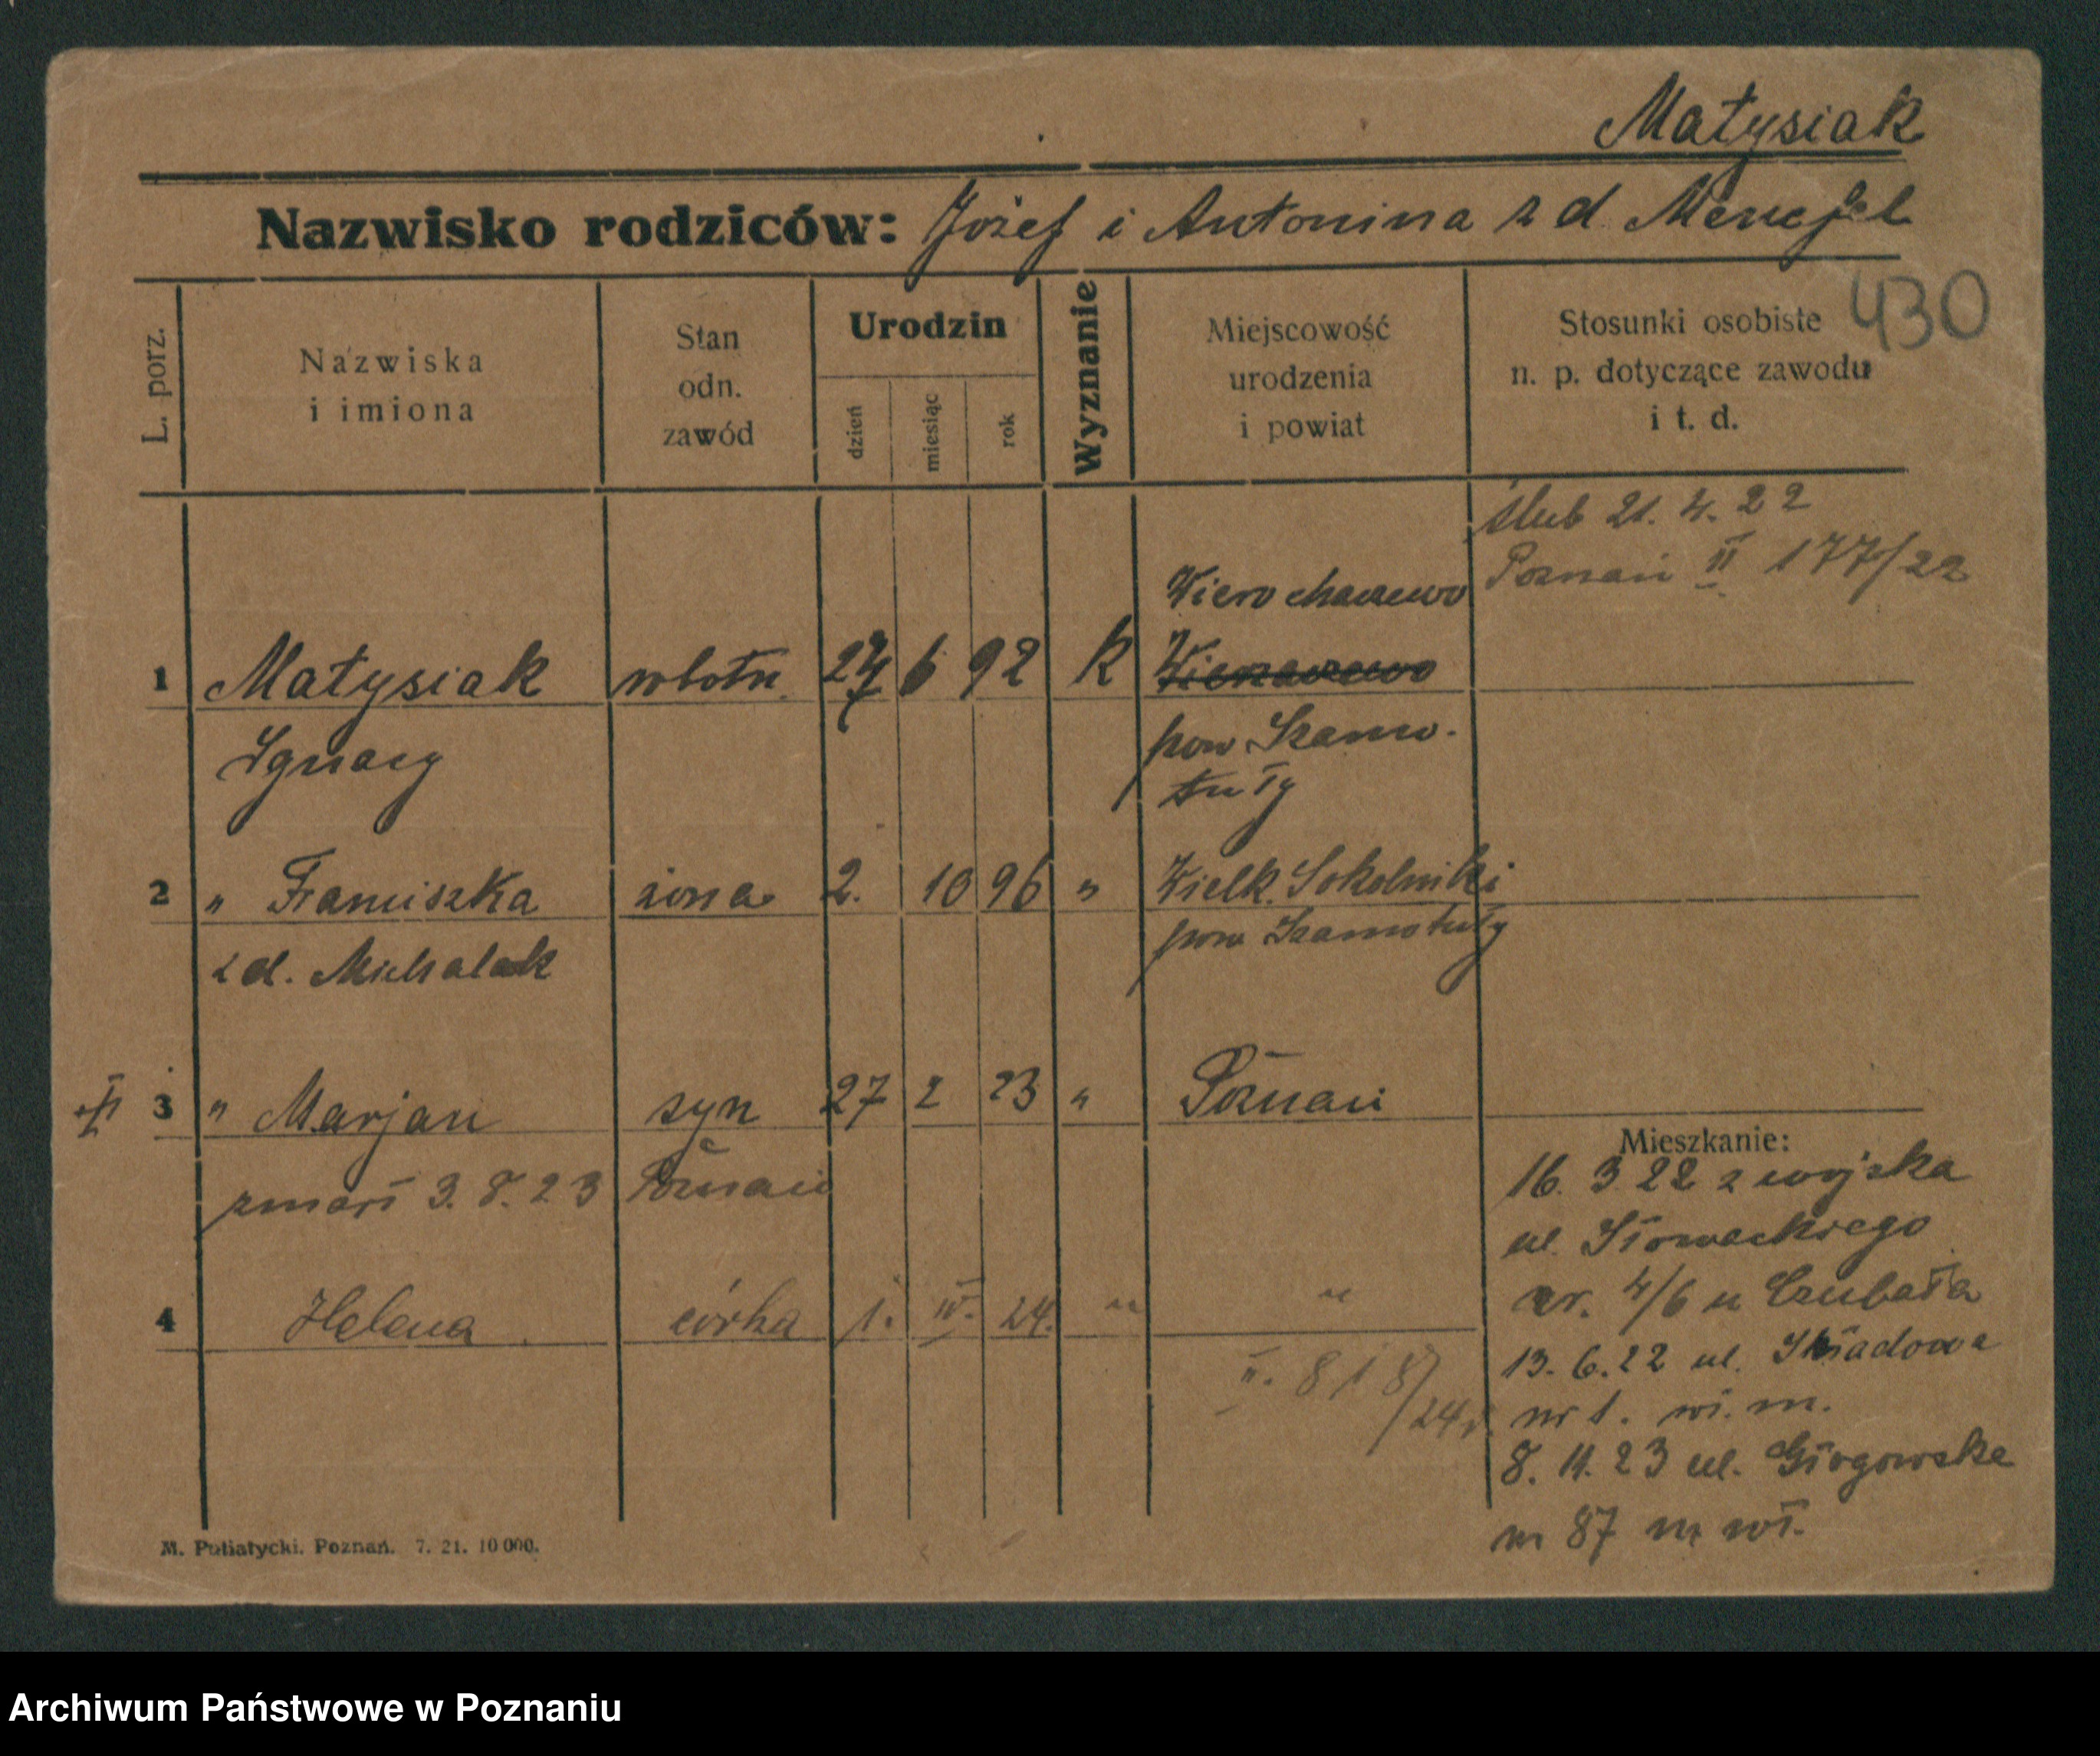 Matysiak
Nazwisko rodziców: Józef i Antonina z d. Mencfel
430
L. porz.
Nazwiska
i imiona
Stan
odn.
zawód
Urodzin
dzień
miesiąc
rok
Wyznanie
Miejscowość
urodzenia
i powiat
Stosunki osobiste
n. p. dotyczące zawodu
i t. d.
ślub 21. 4. 22
Poznań II 177/22
Wierochaczewo
1 Matysiak robotn. 6 92 K
Ignacy
pow Szamo-
tuły
2 " Franciszka żona 2. 10 96 " Wielk. Sokolniki
z d. Michalak pow Szamotuły
3 " Marjan syn 27 2 23 " Poznań
zmarł 3. 8. 23 Poznań
4 Helena córka 1. IV. 24. " "
II. 818/24
Mieszkanie:
16. 3 22 z wojska
ul. Słowackiego
nr. 4/6 u Czubała
13. 6. 22 ul. Składowa
nr 1. wł. m.
8. 11. 23 ul. Głogowska
nr 87 m wł.
M. Putiatycki. Poznań. 7. 21. 10 000.
Archiwum Państwowe w Poznaniu